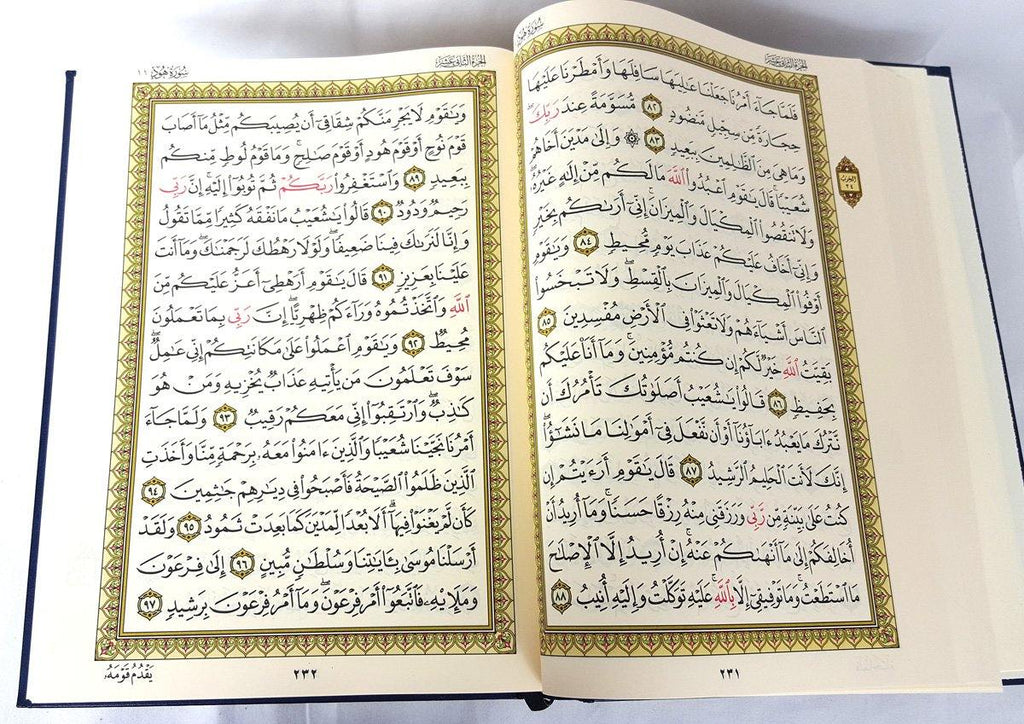 سُورَةُ هُودٍ
الجُزْءُ الثَّانِي عَشَرَ
فَلَمَّا جَآءَ أَمْرُنَا جَعَلْنَا عَٰلِيَهَا سَافِلَهَا وَأَمْطَرْنَا عَلَيْهَا
حِجَارَةً مِّن سِجِّيلٍ مَّنضُودٍ ٨٢ مُّسَوَّمَةً عِندَ رَبِّكَۖ
وَمَا هِىَ مِنَ ٱلظَّٰلِمِينَ بِبَعِيدٍ ٨٣ ۞ وَإِلَىٰ مَدْيَنَ أَخَاهُمْ
شُعَيْبًاۚ قَالَ يَٰقَوْمِ ٱعْبُدُوا۟ ٱللَّهَ مَا لَكُم مِّنْ إِلَٰهٍ غَيْرُهُۥۖ
وَلَا تَنقُصُوا۟ ٱلْمِكْيَالَ وَٱلْمِيزَانَۚ إِنِّىٓ أَرَىٰكُم بِخَيْرٍ
وَإِنِّىٓ أَخَافُ عَلَيْكُمْ عَذَابَ يَوْمٍ مُّحِيطٍ ٨٤ وَيَٰقَوْمِ
أَوْفُوا۟ ٱلْمِكْيَالَ وَٱلْمِيزَانَ بِٱلْقِسْطِۖ وَلَا تَبْخَسُوا۟
ٱلنَّاسَ أَشْيَآءَهُمْ وَلَا تَعْثَوْا۟ فِى ٱلْأَرْضِ مُفْسِدِينَ ٨٥
بَقِيَّتُ ٱللَّهِ خَيْرٌ لَّكُمْ إِن كُنتُم مُّؤْمِنِينَۚ وَمَآ أَنَا۠ عَلَيْكُم
بِحَفِيظٍ ٨٦ قَالُوا۟ يَٰشُعَيْبُ أَصَلَوٰتُكَ تَأْمُرُكَ أَن
نَّتْرُكَ مَا يَعْبُدُ ءَابَآؤُنَآ أَوْ أَن نَّفْعَلَ فِىٓ أَمْوَٰلِنَا مَا نَشَٰٓؤُا۟ۖ
إِنَّكَ لَأَنتَ ٱلْحَلِيمُ ٱلرَّشِيدُ ٨٧ قَالَ يَٰقَوْمِ أَرَءَيْتُمْ إِن
كُنتُ عَلَىٰ بَيِّنَةٍ مِّن رَّبِّى وَرَزَقَنِى مِنْهُ رِزْقًا حَسَنًاۚ وَمَآ أُرِيدُ أَنْ
أُخَالِفَكُمْ إِلَىٰ مَآ أَنْهَىٰكُمْ عَنْهُۚ إِنْ أُرِيدُ إِلَّا ٱلْإِصْلَٰحَ
مَا ٱسْتَطَعْتُۚ وَمَا تَوْفِيقِىٓ إِلَّا بِٱللَّهِۚ عَلَيْهِ تَوَكَّلْتُ وَإِلَيْهِ أُنِيبُ ٨٨
الحزب
٢٤
٢٣١
سُورَةُ هُودٍ ١١
الجُزْءُ الثَّانِي عَشَرَ
وَيَٰقَوْمِ لَا يَجْرِمَنَّكُمْ شِقَاقِىٓ أَن يُصِيبَكُم مِّثْلُ مَآ أَصَابَ
قَوْمَ نُوحٍ أَوْ قَوْمَ هُودٍ أَوْ قَوْمَ صَٰلِحٍۚ وَمَا قَوْمُ لُوطٍ مِّنكُم
بِبَعِيدٍ ٨٩ وَٱسْتَغْفِرُوا۟ رَبَّكُمْ ثُمَّ تُوبُوٓا۟ إِلَيْهِۚ إِنَّ رَبِّى
رَحِيمٌ وَدُودٌ ٩٠ قَالُوا۟ يَٰشُعَيْبُ مَا نَفْقَهُ كَثِيرًا مِّمَّا تَقُولُ
وَإِنَّا لَنَرَىٰكَ فِينَا ضَعِيفًاۖ وَلَوْلَا رَهْطُكَ لَرَجَمْنَٰكَۖ وَمَآ أَنتَ
عَلَيْنَا بِعَزِيزٍ ٩١ قَالَ يَٰقَوْمِ أَرَهْطِىٓ أَعَزُّ عَلَيْكُم مِّنَ
ٱللَّهِ وَٱتَّخَذْتُمُوهُ وَرَآءَكُمْ ظِهْرِيًّاۖ إِنَّ رَبِّى بِمَا تَعْمَلُونَ
مُحِيطٌ ٩٢ وَيَٰقَوْمِ ٱعْمَلُوا۟ عَلَىٰ مَكَانَتِكُمْ إِنِّى عَٰمِلٌۖ
سَوْفَ تَعْلَمُونَ مَن يَأْتِيهِ عَذَابٌ يُخْزِيهِ وَمَنْ هُوَ
كَٰذِبٌۖ وَٱرْتَقِبُوٓا۟ إِنِّى مَعَكُمْ رَقِيبٌ ٩٣ وَلَمَّا جَآءَ
أَمْرُنَا نَجَّيْنَا شُعَيْبًا وَٱلَّذِينَ ءَامَنُوا۟ مَعَهُۥ بِرَحْمَةٍ مِّنَّا وَأَخَذَتِ
ٱلَّذِينَ ظَلَمُوا۟ ٱلصَّيْحَةُ فَأَصْبَحُوا۟ فِى دِيَٰرِهِمْ جَٰثِمِينَ ٩٤
كَأَن لَّمْ يَغْنَوْا۟ فِيهَآۗ أَلَا بُعْدًا لِّمَدْيَنَ كَمَا بَعِدَتْ ثَمُودُ ٩٥ وَلَقَدْ
أَرْسَلْنَا مُوسَىٰ بِـَٔايَٰتِنَا وَسُلْطَٰنٍ مُّبِينٍ ٩٦ إِلَىٰ فِرْعَوْنَ
وَمَلَإِي۟هِۦ فَٱتَّبَعُوٓا۟ أَمْرَ فِرْعَوْنَۖ وَمَآ أَمْرُ فِرْعَوْنَ بِرَشِيدٍ ٩٧
٢٣٢
يَقْدُمُ قَوْمَهُۥ